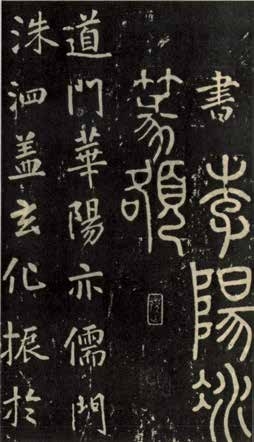 書李陽冰
篆額
道門華陽亦儒門
洙泗盖玄化振於